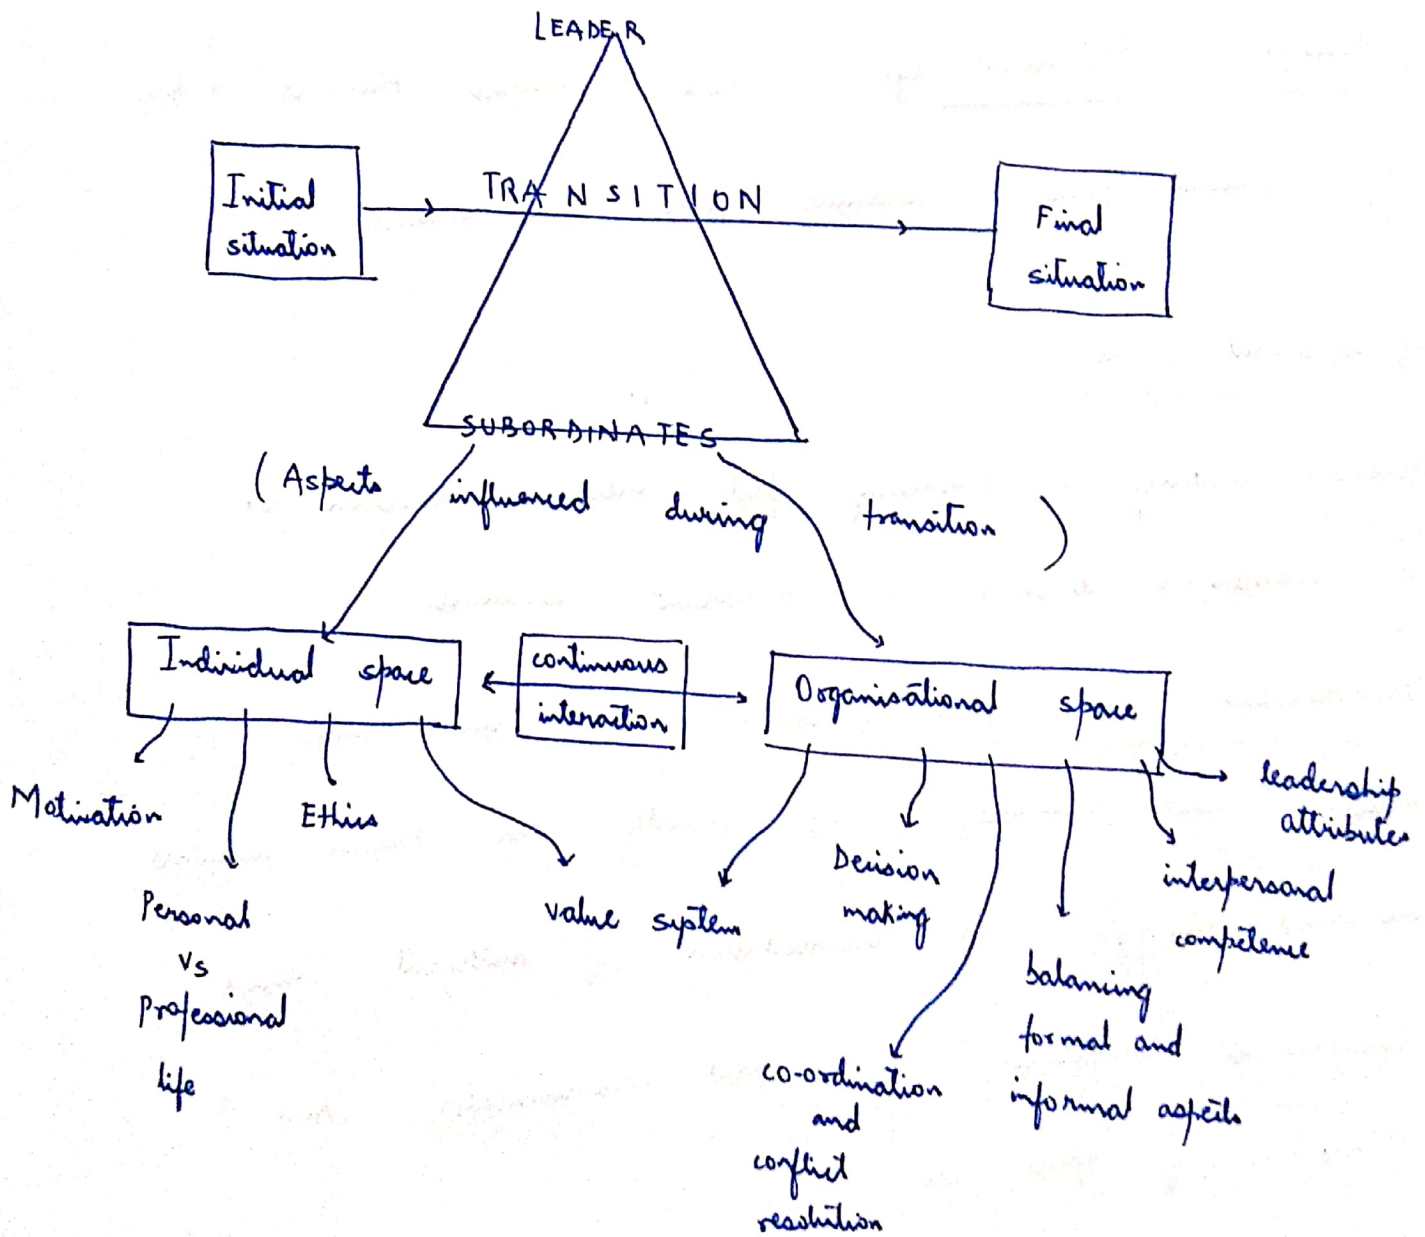 LEADER
TRANSITION
Initial
situation
Final
situation
SUBORDINATES
(Aspects influenced during transition)
Individual space
continuous
interaction
Organisational space
Motivation
Ethics
Personal
Vs
Professional
life
value system
Decision
making
co-ordination
and
conflict
resolution
balancing
formal and
informal aspects
interpersonal
competence
leadership
attributes